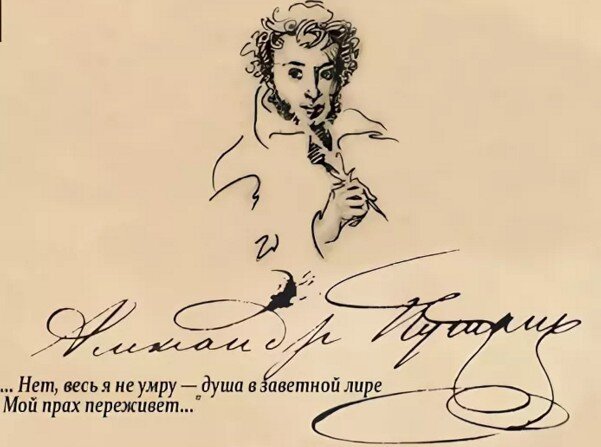 Александр Пушкин
... Нет, весь я не умру — душа в заветной лире
Мой прах переживет..."